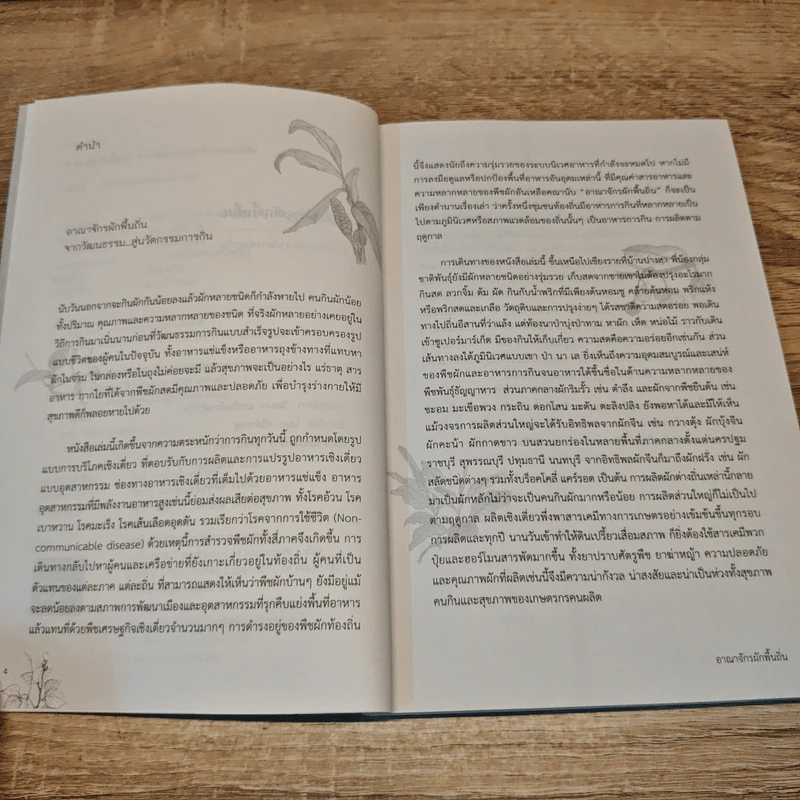 คำนำ
อาณาจักรผักพื้นถิ่น
จากวัฒนธรรม...สู่นวัตกรรมการกิน
นับวันนอกจากจะกินผักกันน้อยลงแล้วผักหลายชนิดก็กำลังหายไป คนกินผักน้อย
ทั้งปริมาณ คุณภาพและความหลากหลายของชนิด ที่จริงผักหลายอย่างเคยอยู่ใน
วิถีการกินมาเนิ่นนานก่อนที่วัฒนธรรมการกินแบบสำเร็จรูปจะเข้าครอบครองรูป
แบบชีวิตของผู้คนในปัจจุบัน ทั้งอาหารแช่แข็งหรืออาหารถุงข้างทางที่แทบหา
ผักในจาน ในกล่องหรือในถุงไม่ค่อยจะมี แล้วสุขภาพจะเป็นอย่างไร แร่ธาตุ สาร
อาหาร กากใยที่ได้จากผักสดมีคุณภาพและปลอดภัย เพื่อบำรุงร่างกายให้มี
สุขภาพดีก็พลอยหายไปด้วย
หนังสือเล่มนี้เกิดขึ้นจากความตระหนักว่าการกินทุกวันนี้ ถูกกำหนดโดยรูป
แบบการบริโภคเชิงเดี่ยว ที่ตอบรับกับการผลิตและการแปรรูปอาหารเชิงเดี่ยว
แบบอุตสาหกรรม ช่องทางอาหารเชิงเดี่ยวที่เต็มไปด้วยอาหารแช่แข็ง อาหาร
อุตสาหกรรมที่มีพลังงานอาหารสูงเช่นนี้ย่อมส่งผลเสียต่อสุขภาพ ทั้งโรคอ้วน โรค
เบาหวาน โรคมะเร็ง โรคเส้นเลือดอุดตัน รวมเรียกว่าโรคจากการใช้ชีวิต (Non-
communicable disease) ด้วยเหตุนี้การสำรวจพืชผักทั้งสี่ภาคจึงเกิดขึ้น การ
เดินทางกลับไปหาผู้คนและเครือข่ายที่ยังเกาะเกี่ยวอยู่ในท้องถิ่น ผู้คนที่เป็น
ตัวแทนของแต่ละภาค แต่ละถิ่น ที่สามารถแสดงให้เห็นว่าพืชผักบ้านๆ ยังมีอยู่แม้
จะลดน้อยลงตามสภาพการพัฒนาเมืองและอุตสาหกรรมที่รุกคืบแย่งพื้นที่อาหาร
แล้วแทนที่ด้วยพืชเศรษฐกิจเชิงเดี่ยวจำนวนมากๆ การดำรงอยู่ของพืชผักท้องถิ่น
4
นี้จึงแสดงนัยถึงความร่ำรวยของระบบนิเวศอาหารที่กำลังจะหมดไป หากไม่มี
การลงมือดูแลหรือปกป้องพื้นที่อาหารอันอุดมเหล่านี้ ที่มีคุณค่าสารอาหารและ
ความหลากหลายของพืชผักอันเหลือคณานับ “อาณาจักรผักพื้นถิ่น” ก็จะเป็น
เพียงตำนานเรื่องเล่า ว่าครั้งหนึ่งชุมชนท้องถิ่นมีอาหารการกินที่หลากหลายเป็น
ไปตามภูมินิเวศหรือสภาพแวดล้อมของถิ่นนั้นๆ เป็นอาหารการกิน การผลิตตาม
ฤดูกาล
การเดินทางของหนังสือเล่มนี้ ขึ้นเหนือไปเชียงรายที่บ้านปางสา พี่น้องกลุ่ม
ชาติพันธุ์ยังมีผักหลายชนิดอย่างร่ำรวย เก็บสดจากชายเขาไม่ต้องปรุงอะไรมาก
กินสด ลวกจิ้ม ต้ม ผัด กินกับน้ำพริกที่มีเพียงต้นหอมชู คล้ายต้นหอม พริกแห้ง
หรือพริกสดและเกลือ วัตถุดิบและการปรุงง่ายๆ ได้รสชาติความสดอร่อย พอเดิน
ทางไปถิ่นอีสานที่ว่าแล้ง แต่ท้องนาป่าบุ่งป่าทาม หาผัก เห็ด หน่อไม้ ราวกับเดิน
เข้าซูเปอร์มาร์เก็ต มีของกินให้เก็บเกี่ยว ความสดคือความอร่อยอีกเช่นกัน ส่วน
เส้นทางลงใต้ภูมินิเวศแบบเขา ป่า นา เล ยิ่งเห็นถึงความอุดมสมบูรณ์และเสน่ห์
ของพืชผักและอาหารการกินจนอาหารใต้ขึ้นชื่อในด้านความหลากหลายของ
พืชพันธุ์ธัญญาหาร ส่วนภาคกลางผักริมรั้ว เช่น ตำลึง และผักจากพืชยืนต้น เช่น
ชะอม มะเขือพวง กระถิน ดอกโสน มะดัน ตะลิงปลิง ยังพอหาได้และมีให้เห็น
แม้วงจรการผลิตส่วนใหญ่จะได้รับอิทธิพลจากผักจีน เช่น กวางตุ้ง ผักบุ้งจีน
ผักคะน้า ผักกาดขาว บนสวนยกร่องในหลายพื้นที่ภาคกลางตั้งแต่นครปฐม
ราชบุรี สุพรรณบุรี ปทุมธานี นนทบุรี จากอิทธิพลผักจีนก็มาถึงผักฝรั่ง เช่น ผัก
สลัดชนิดต่างๆ รวมทั้งบร็อคโคลี่ แคร์รอต เป็นต้น การผลิตผักต่างถิ่นเหล่านี้กลาย
มาเป็นผักหลักไม่ว่าจะเป็นคนกินผักมากหรือน้อย การผลิตส่วนใหญ่ก็ไม่เป็นไป
ตามฤดูกาล ผลิตเชิงเดี่ยวพึ่งพาสารเคมีทางการเกษตรอย่างเข้มข้นขึ้นทุกรอบ
การผลิตและทุกปี นานวันเข้าทำให้ดินเปรี้ยวเสื่อมสภาพ ก็ยิ่งต้องใช้สารเคมีพวก
ปุ๋ยและฮอร์โมนสารพัดมากขึ้น ทั้งยาปราบศัตรูพืช ยาฆ่าหญ้า ความปลอดภัย
และคุณภาพผักที่ผลิตเช่นนี้จึงมีความน่ากังวล น่าสงสัยและน่าเป็นห่วงทั้งสุขภาพ
คนกินและสุขภาพของเกษตรกรคนผลิต
อาณาจักรผักพื้นถิ่น